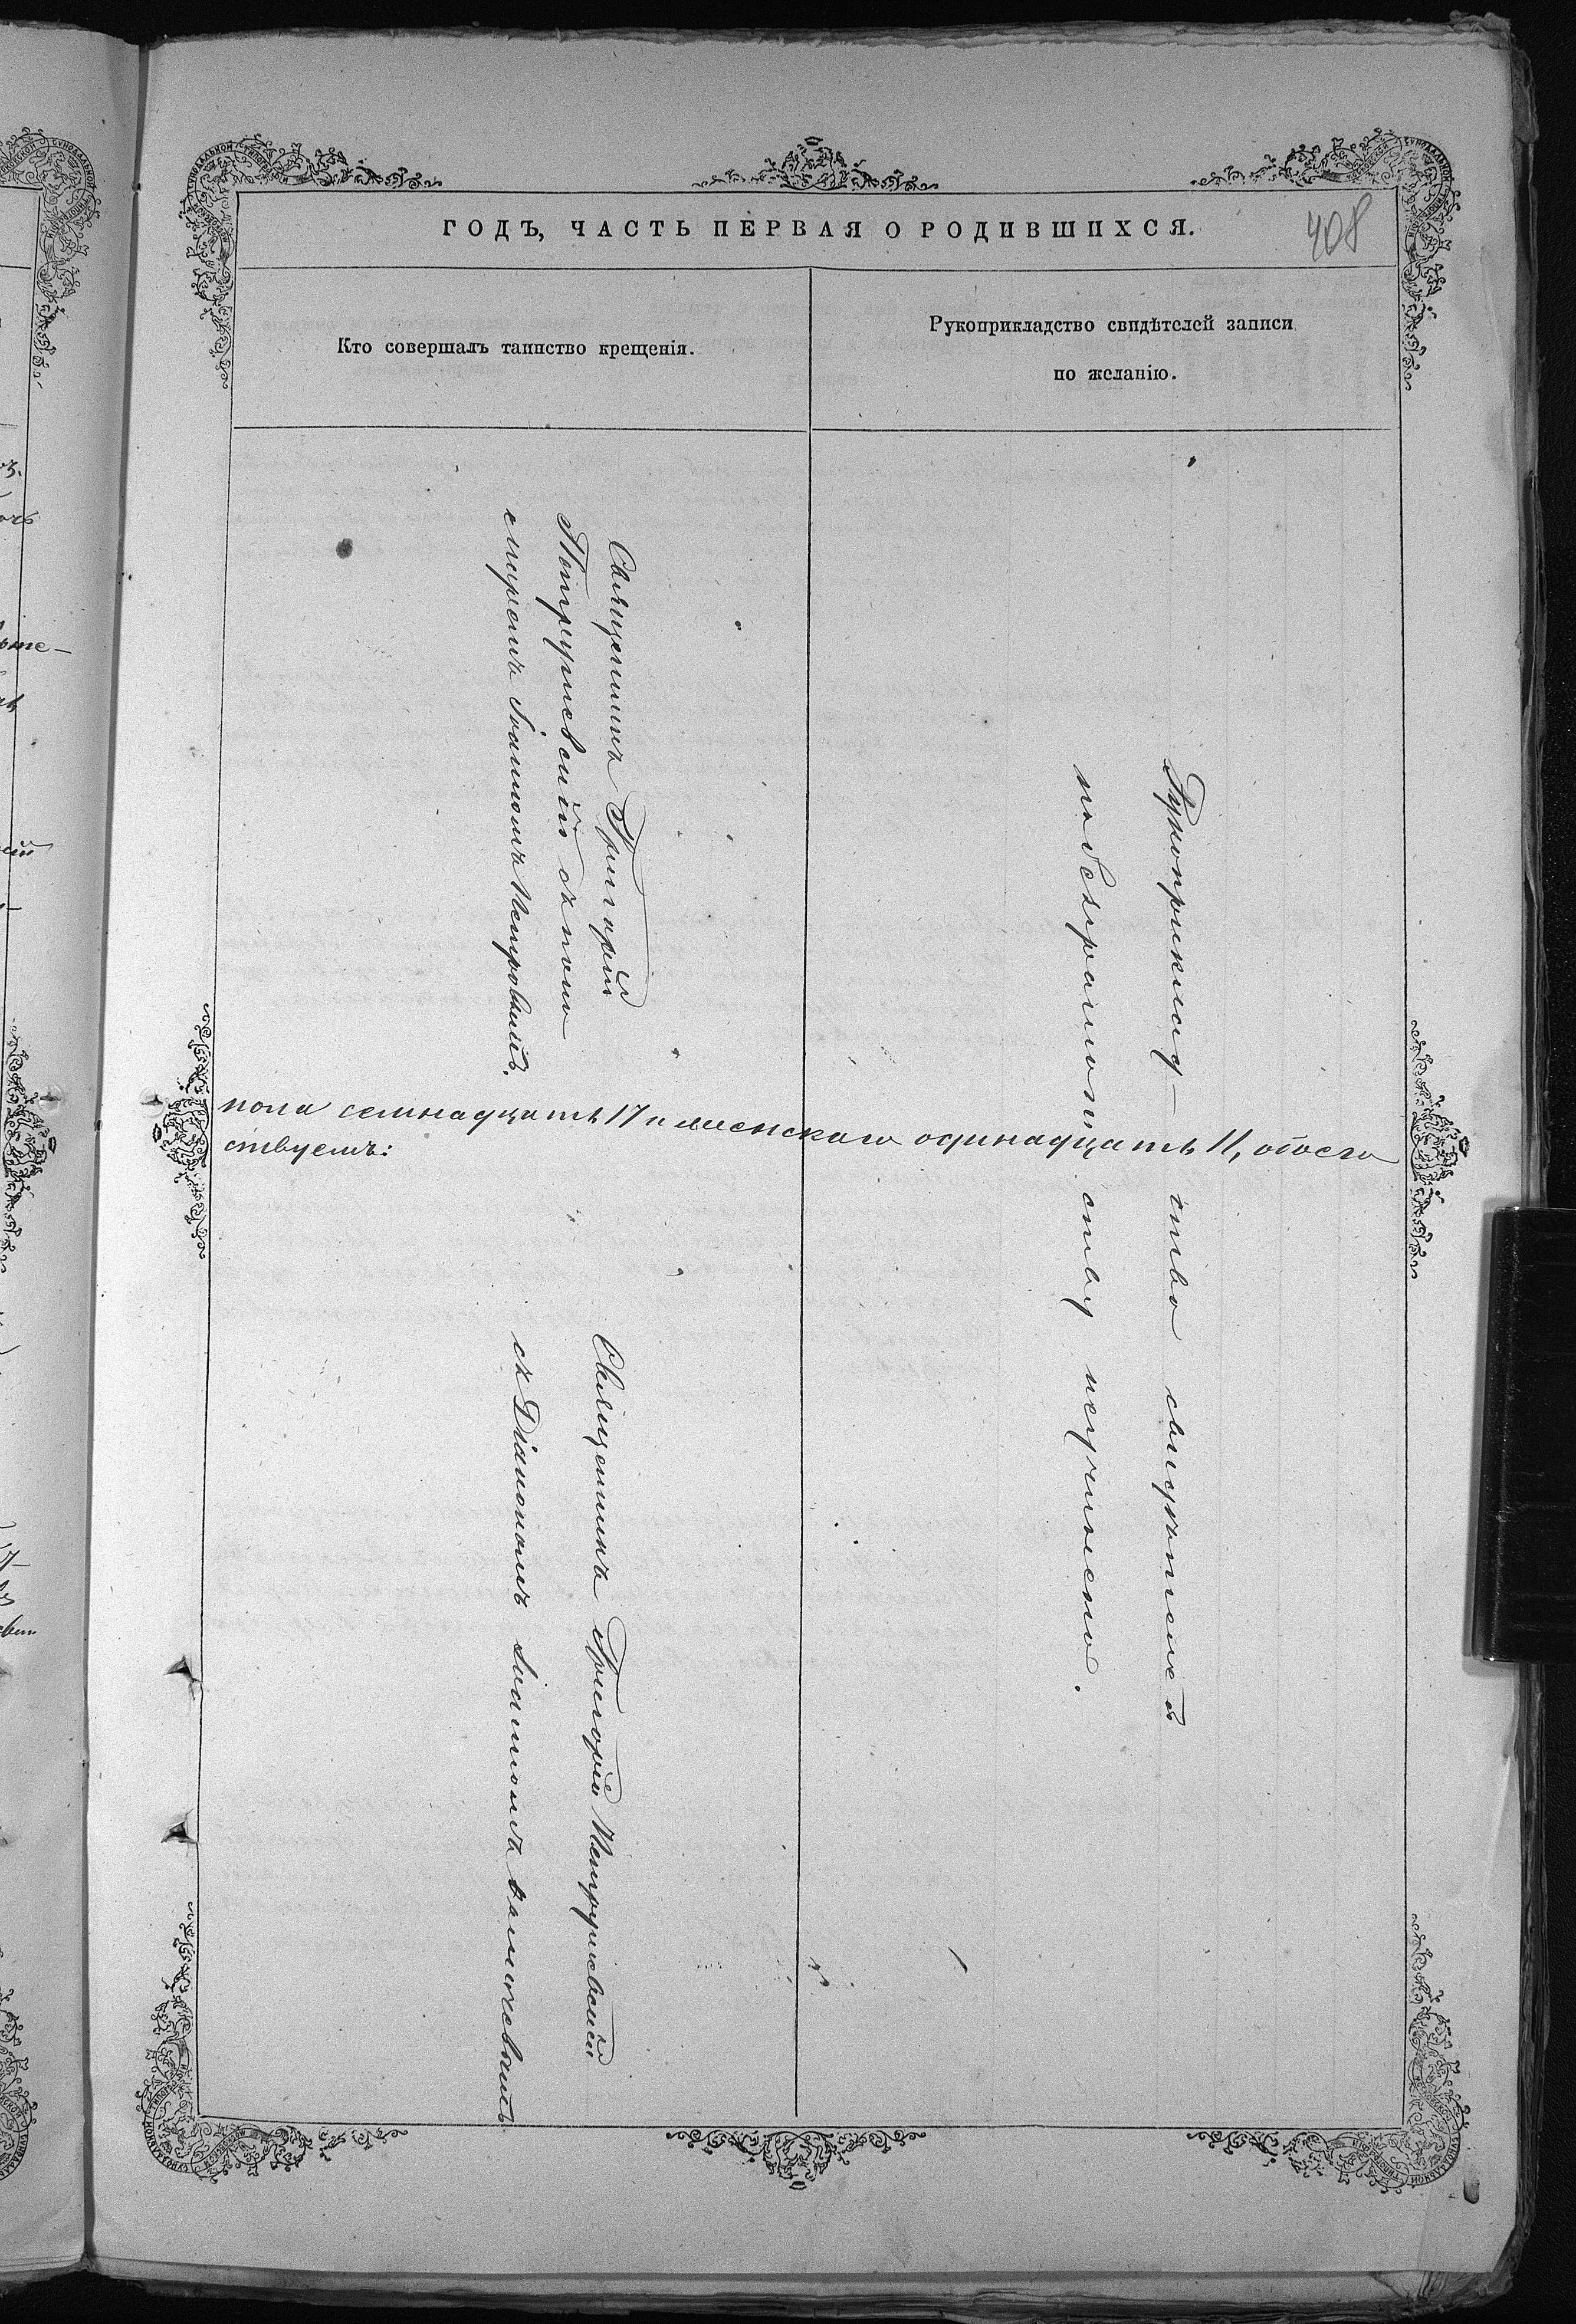 ГОДЪ, ЧАСТЬ ПЕРВАЯ О РОДИВШИХСЯ.
408
Кто совершалъ таинство крещенія.
Рукоприкладство свидѣтелей записи
по желанію.
Священникъ Григорій
Петрушевскій съ поно
маремъ Іоанномъ Петровымъ.
Рукоприкладство свидѣтелей
по безграмотству неучинено.
пола семнадцать 17 и женскаго одинадцать 11, обоего
ствуемъ:
Священникъ Григорій Петрушевскій
съ Діакономъ Іоанномъ